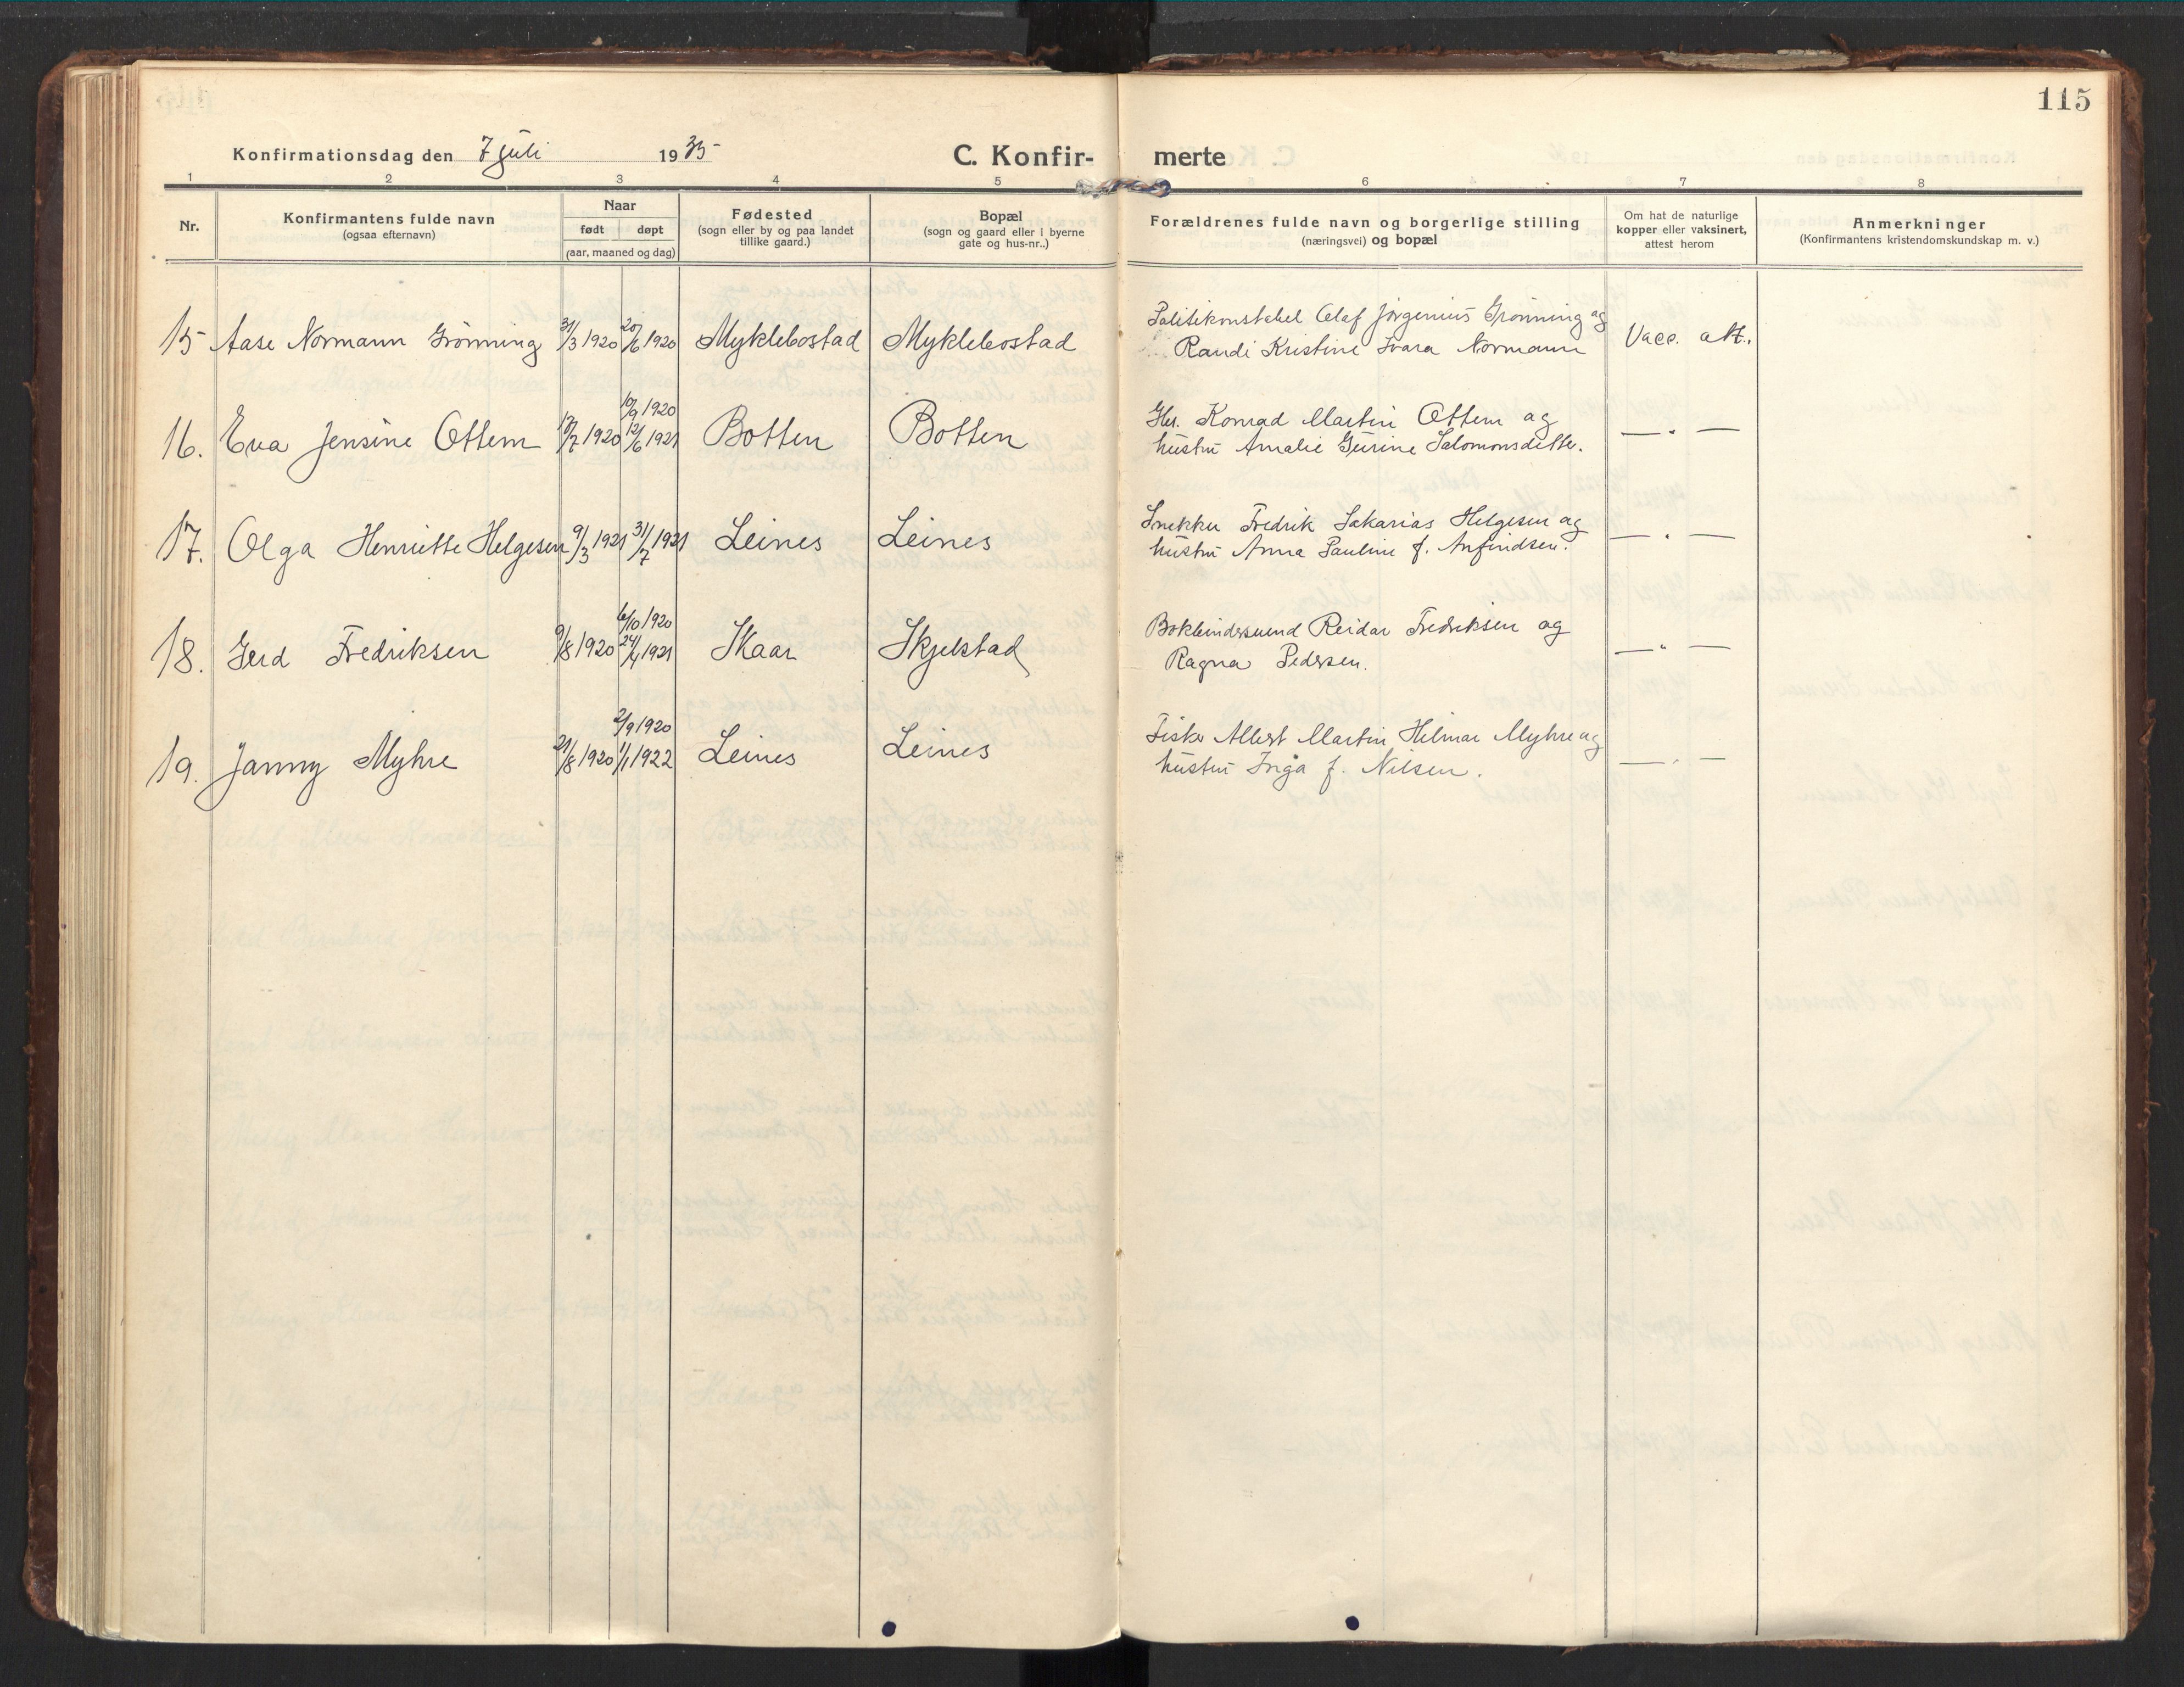 115
Konfirmationsdag den 7 juli 1935
C. Konfir- merte
1 2 3 4 5 6 7 8
Nr.
Konfirmantens fulde navn
(ogsaa efternavn)
Naar
født døpt
(aar, maaned og dag)
Fødested
(sogn eller by og paa landet
tillike gaard.)
Bopæl
(sogn og gaard eller i byerne
gate og hus-nr..)
Forældrenes fulde navn og borgerlige stilling
(næringsvei) og bopæl
Om hat de naturlige
kopper eller vaksinert,
attest herom
Anmerkninger
(Konfirmantens kristendomskundskap m. v.)
15 Aase Normann Grönning 31/3 1920 20/6 1920 Myklebostad Myklebostad
Politikonstabel Olaf Jörgenius Grönning og
Randi Kristine Ivara Normann
Vacc. att.
16. Eva Jensine Ottem /7 1920 10/9 1920
12/6 1921 Botten Botten
Gbr. Konrad Martin Ottem og
hustru Amalie Gurine Salomonsdatter.
— " —
17. Olga Henriette Helgesen 9/3 1921 31/7 1921 Leines Leines
Snekker Fredrik Sakarias Helgesen og
hustru Anna Pauline f. Anfindsen.
— " —
18. Gerd Fredriksen 9/8 1920 6/10 1920
24/4 1921 Skaar Skjelstad
Bokbindersvend Reidar Fredriksen og
Ragna Pedersen.
— " —
19. Janny Myhre 21/8 1920 2/9 1920
1/1 1922 Leines Leines
Fisker Albert Martin Hilmar Myhre og
hustru Inga f. Nilsen.
— " —